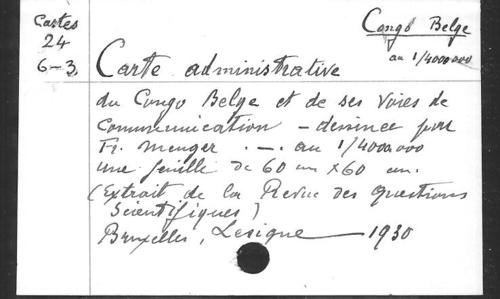 Cartes
24
6-3.
Congo Belge
au 1/4000.000
Carte administrative
du Congo Belge et de ses Voies de
Communication - dessinée par
Fr. Menger . -. au 1/4000.000
une feuille de 60 cm x 60 cm.
(Extrait de la Revue des Questions
Scientifiques)
Bruxelles, Lesigne — 1930